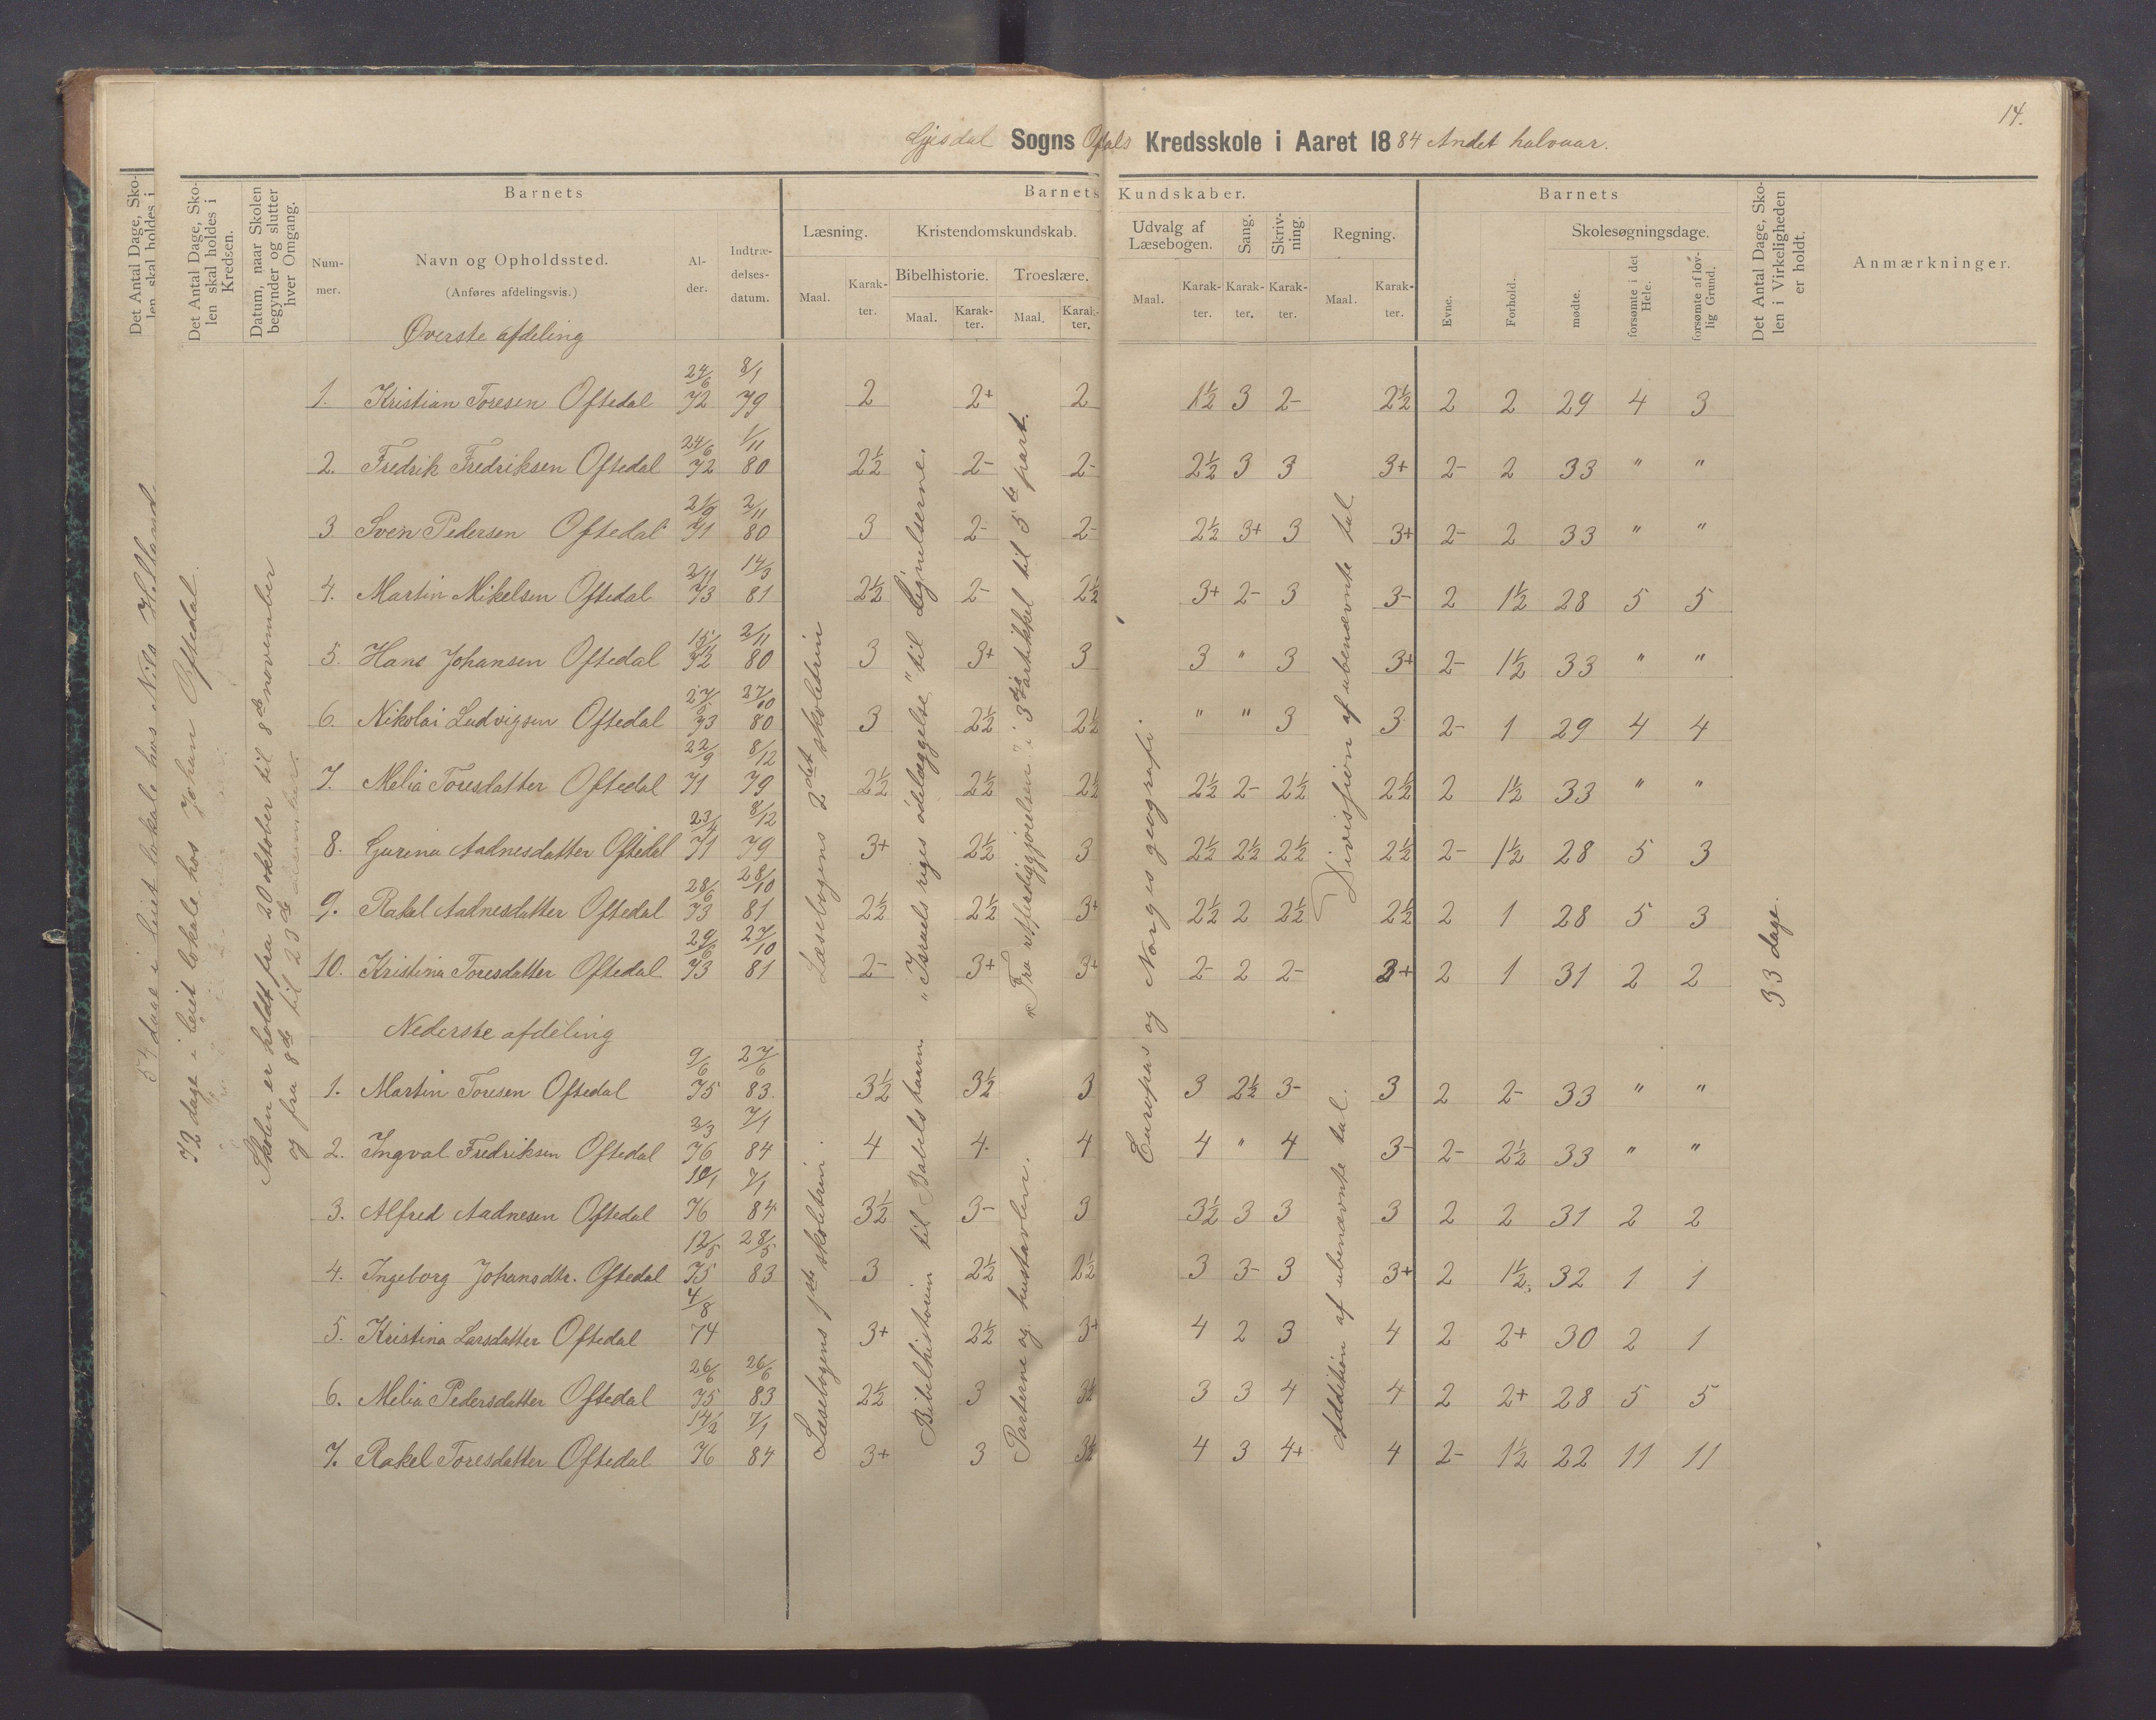 14.
Gjesdal Sogns Ofdals Kredsskole i Aaret 1884 Andet halvaar.
Det Antal Dage, Skolen skal holdes i
Det Antal Dage, Sko-
len skal holdes i
Kredsen.
Datum, naar Skolen
begynder og slutter
hver Omgang.
Barnets
Num-
mer.
Navn og Opholdssted.
(Anføres afdelingsvis.)
Al-
der.
Indtræ-
delses-
datum.
Barnets Kundskaber.
Læsning.
Maal. Karak-
ter.
Kristendomskundskab.
Bibelhistorie. Troeslære.
Maal. Karak-
ter. Maal. Karak-
ter.
Udvalg af
Læsebogen.
Maal. Karak-
ter.
Sang.
Karak-
ter.
Skriv-
ning.
Karak-
ter.
Regning.
Maal. Karak-
ter.
Barnets
Evne.
Forhold.
Skolesøgningsdage.
mødte.
forsømte i det
Hele.
forsømte af lov-
lig Grund.
Det Antal Dage, Sko-
len i Virkeligheden
er holdt.
Anmærkninger.
72 dage i leiet lokale hos Johan Oftedal.
Skolen er holdt fra 20 oktober til 8de november
og fra 8de til 23de
Øverste afdeling
1. Kristian Toresen Oftedal 24/6 72 8/1 79 2 2+ 2 1½ 3 2- 2½ 2 2 29 4 3
2. Fredrik Fredriksen Oftedal 24/6 72 1/11 80 2½ 2- 2- 2½ 3 3 3+ 2- 2 33 " "
3 Sven Pedersen Oftedal 21/9 71 2/11 80 3 2- 2- 2½ 3+ 3 3+ 2- 2 33 " "
4. Martin Mikelsen Oftedal 2/11 73 14/3 81 2½ 2- 2½ 3+ 2- 3 3- 2 1½ 28 5 5
5. Hans Johansen Oftedal 15/11 72 2/11 80 3 3+ 3 3 " 3 3+ 2- 1½ 33 " "
6. Nikolai Ludvigsen Oftedal 73 27/10 80 3 2½ 2½ " " 3 3 2- 1 29 4 4
7. Melia Toresdatter Oftedal 22/9 71 8/12 79 2½ 2½ 2½ 2½ 2- 2½ 2½ 2 1½ 33 " "
8. Gurina Aadnesdatter Oftedal 23/4 71 8/12 79 3+ 2½ 3 2½ 2½ 2½ 2½ 2- 1½ 28 5 3
9. Rakel Aadnesdatter Oftedal 28/6 73 28/10 81 2½ 2½ 3+ 2½ 2 2½ 2½ 2 1 28 5 3
10. Kristina Toresdatter Oftedal 29/6 73 27/10 81 2- 3+ 3+ 2- 2 2- 3+ 2 1 31 2 2
Læsebogens 2det skoletrin
"Israels riges ödelæggelse" til Lignelserne.
"Fra retfærdiggjørelsen" i 3die artikkel til 5te part.
Europas og Norges geografi.
Division af ubenævnte tal
33 dage.
Nederste afdeling
1. Martin Toresen Oftedal 9/6 75 27/6 83. 3½ 3½ 3 3 2½ 3- 3 2 2- 33 " "
2. Ingval Fredriksen Oftedal 2/3 76 7/1 84 4 4. 4 4 " 4 3- 2- 2½ 33 " "
3. Alfred Aadnesen Oftedal 10/1 76 7/1 84 3½ 3- 3 3½ 3 3 3 2 2 31 2 2
4. Ingeborg Johansdtr. Oftedal 12/5 75 28/5 83 3 2½ 2½ 3 3- 3 3+ 2 1½ 32 1 1
5. Kristina Larsdatter Oftedal 4/8 74 3+ 2½ 3+ 4 2 3 4 2 2+ 30 2 1
6. Melia Pedersdatter Oftedal 26/6 75 26/6 83 2½ 3 3½ 3 3 4 4 2 2+ 28 5 5
7. Rakel Toresdatter Oftedal 14/2 76 7/1 84 3+ 3 3½ 4 3 4+ 4 2- 1½ 22 11 11
Læsebogens 1ste skoletrin.
Bibelhistorien til Babels taarn.
Parterne og hustavlen.
Addition af ubenævnte tal.